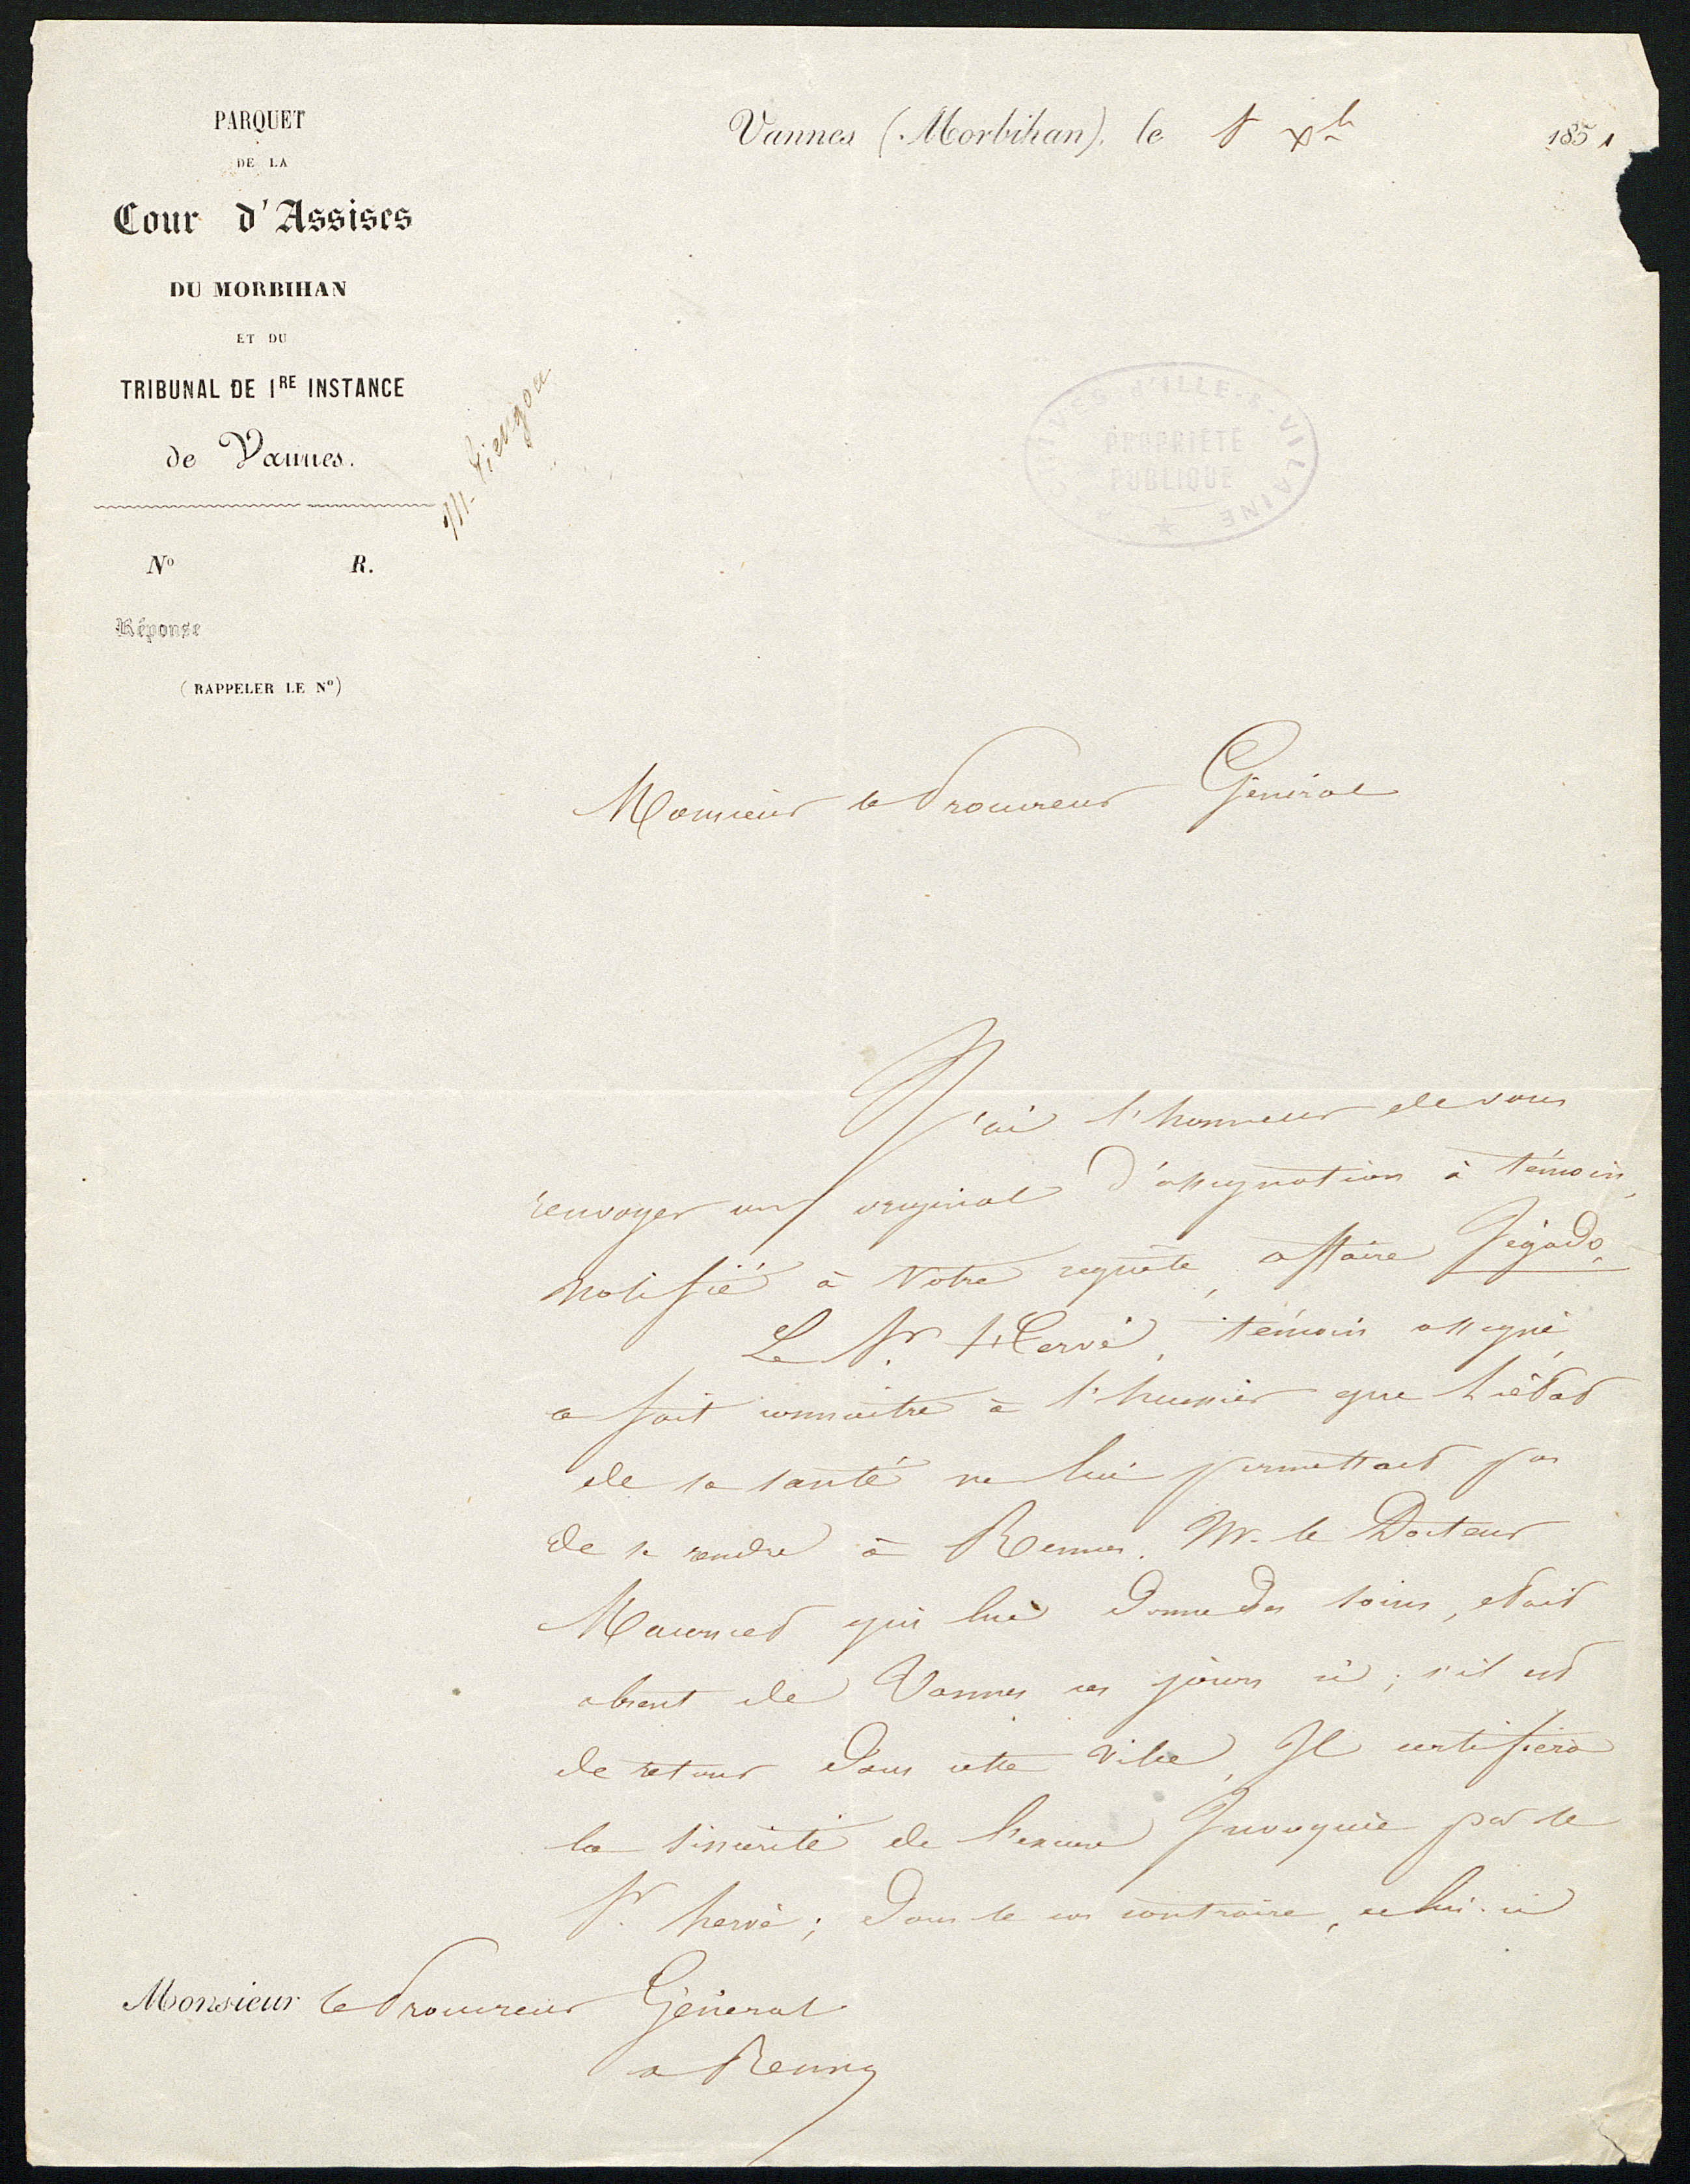 PARQUET
DE LA
Cour d'Assises
DU MORBIHAN
ET DU
TRIBUNAL DE 1RE INSTANCE
de Vannes.
No R.
Réponse
(RAPPELER LE No)
Vannes (Morbihan), le Xbre 1851
ARCHIVES d'ILLE-&-VILAINE
PROPRIÉTÉ
PUBLIQUE
Monsieur le Procureur Général
J'ai l'honneur de vous
renvoyer un original d'assignation à témoin,
notifié à votre requête, affaire Jégado.
Le Sr. Hervé, témoin assigné,
a fait connaître à l'huissier que l'état
de sa santé ne lui permettait pas
de se rendre à Rennes. Mr. le Docteur
Mauricet qui lui donne des soins, était
absent de Vannes ces jours ci; s'il est
de retour dans cette ville, Il certifiera
la sincérité de l'excuse Invoquée par le
Sr. hervé; dans le cas contraire, celui-ci
Monsieur le Procureur Général
a Rennes